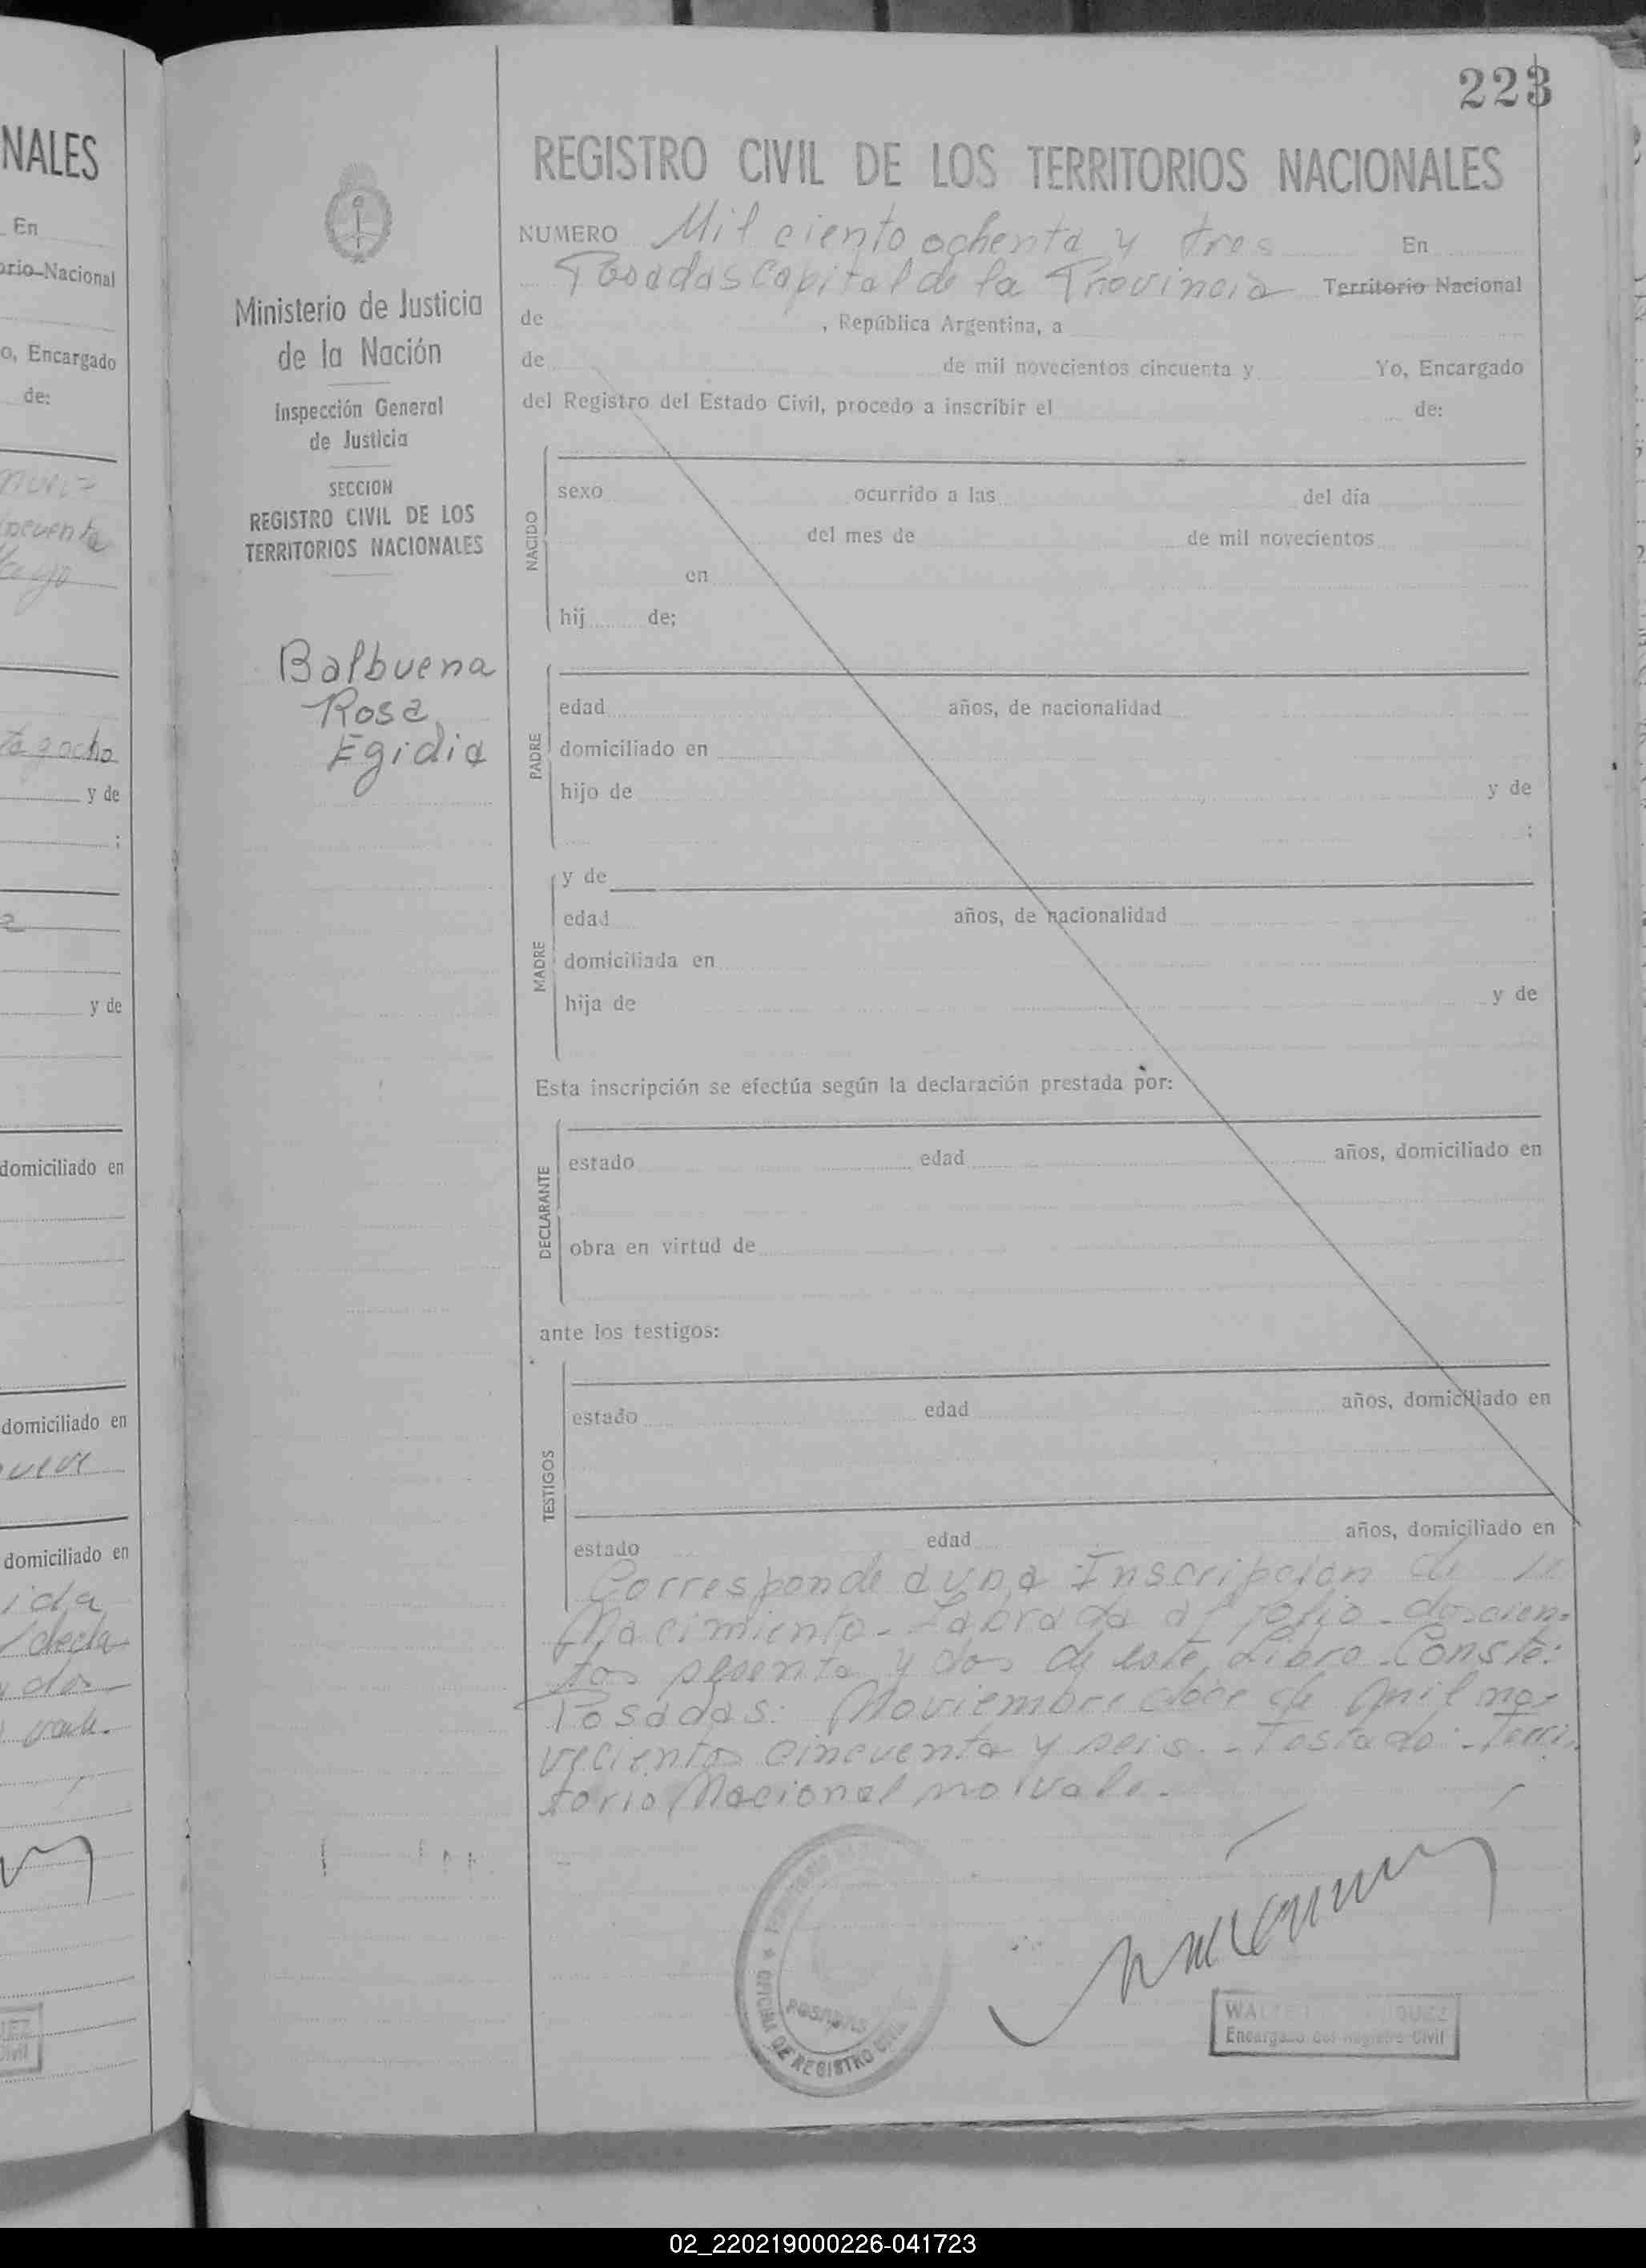 223
NALES
En
Nacional
o, Encargado
de:
cincuenta
y ocho
y de
;
y de
domiciliado en
domiciliado en
domiciliado en
Ministerio de Justicia
de la Nación
Inspección General
de Justicia
SECCION
REGISTRO CIVIL DE LOS
TERRITORIOS NACIONALES
Balbuena
Rosa
Egidia
REGISTRO CIVIL DE LOS TERRITORIOS NACIONALES
NUMERO Mil ciento ochenta y tres En
Posadas Capital de la Provincia Territorio Nacional
de , República Argentina, a
de de mil novecientos cincuenta y Yo, Encargado
del Registro del Estado Civil, procedo a inscribir el de:
NACIDO
sexo ocurrido a las del día
del mes de de mil novecientos
en
hij de;
PADRE
edad años, de nacionalidad
domiciliado en
hijo de y de
;
MADRE
y de
edad años, de nacionalidad
domiciliada en
hija de y de
Esta inscripción se efectúa según la declaración prestada por:
DECLARANTE
estado edad años, domiciliado en
obra en virtud de
ante los testigos:
TESTIGOS
estado edad años, domiciliado en
estado edad años, domiciliado en
Corresponde a una Inscripción de
Nacimiento - Labrada al folio - doscien-
tos y dos de este Libro - Conste:
Posadas: Noviembre doce de mil no-
vecientos cincuenta y seis. - Testado: - Terri-
torio Nacional no vale. -
OFICINA DE REGISTRO CIVIL
POSADAS
Encargado del Registro Civil
02_220219000226-041723